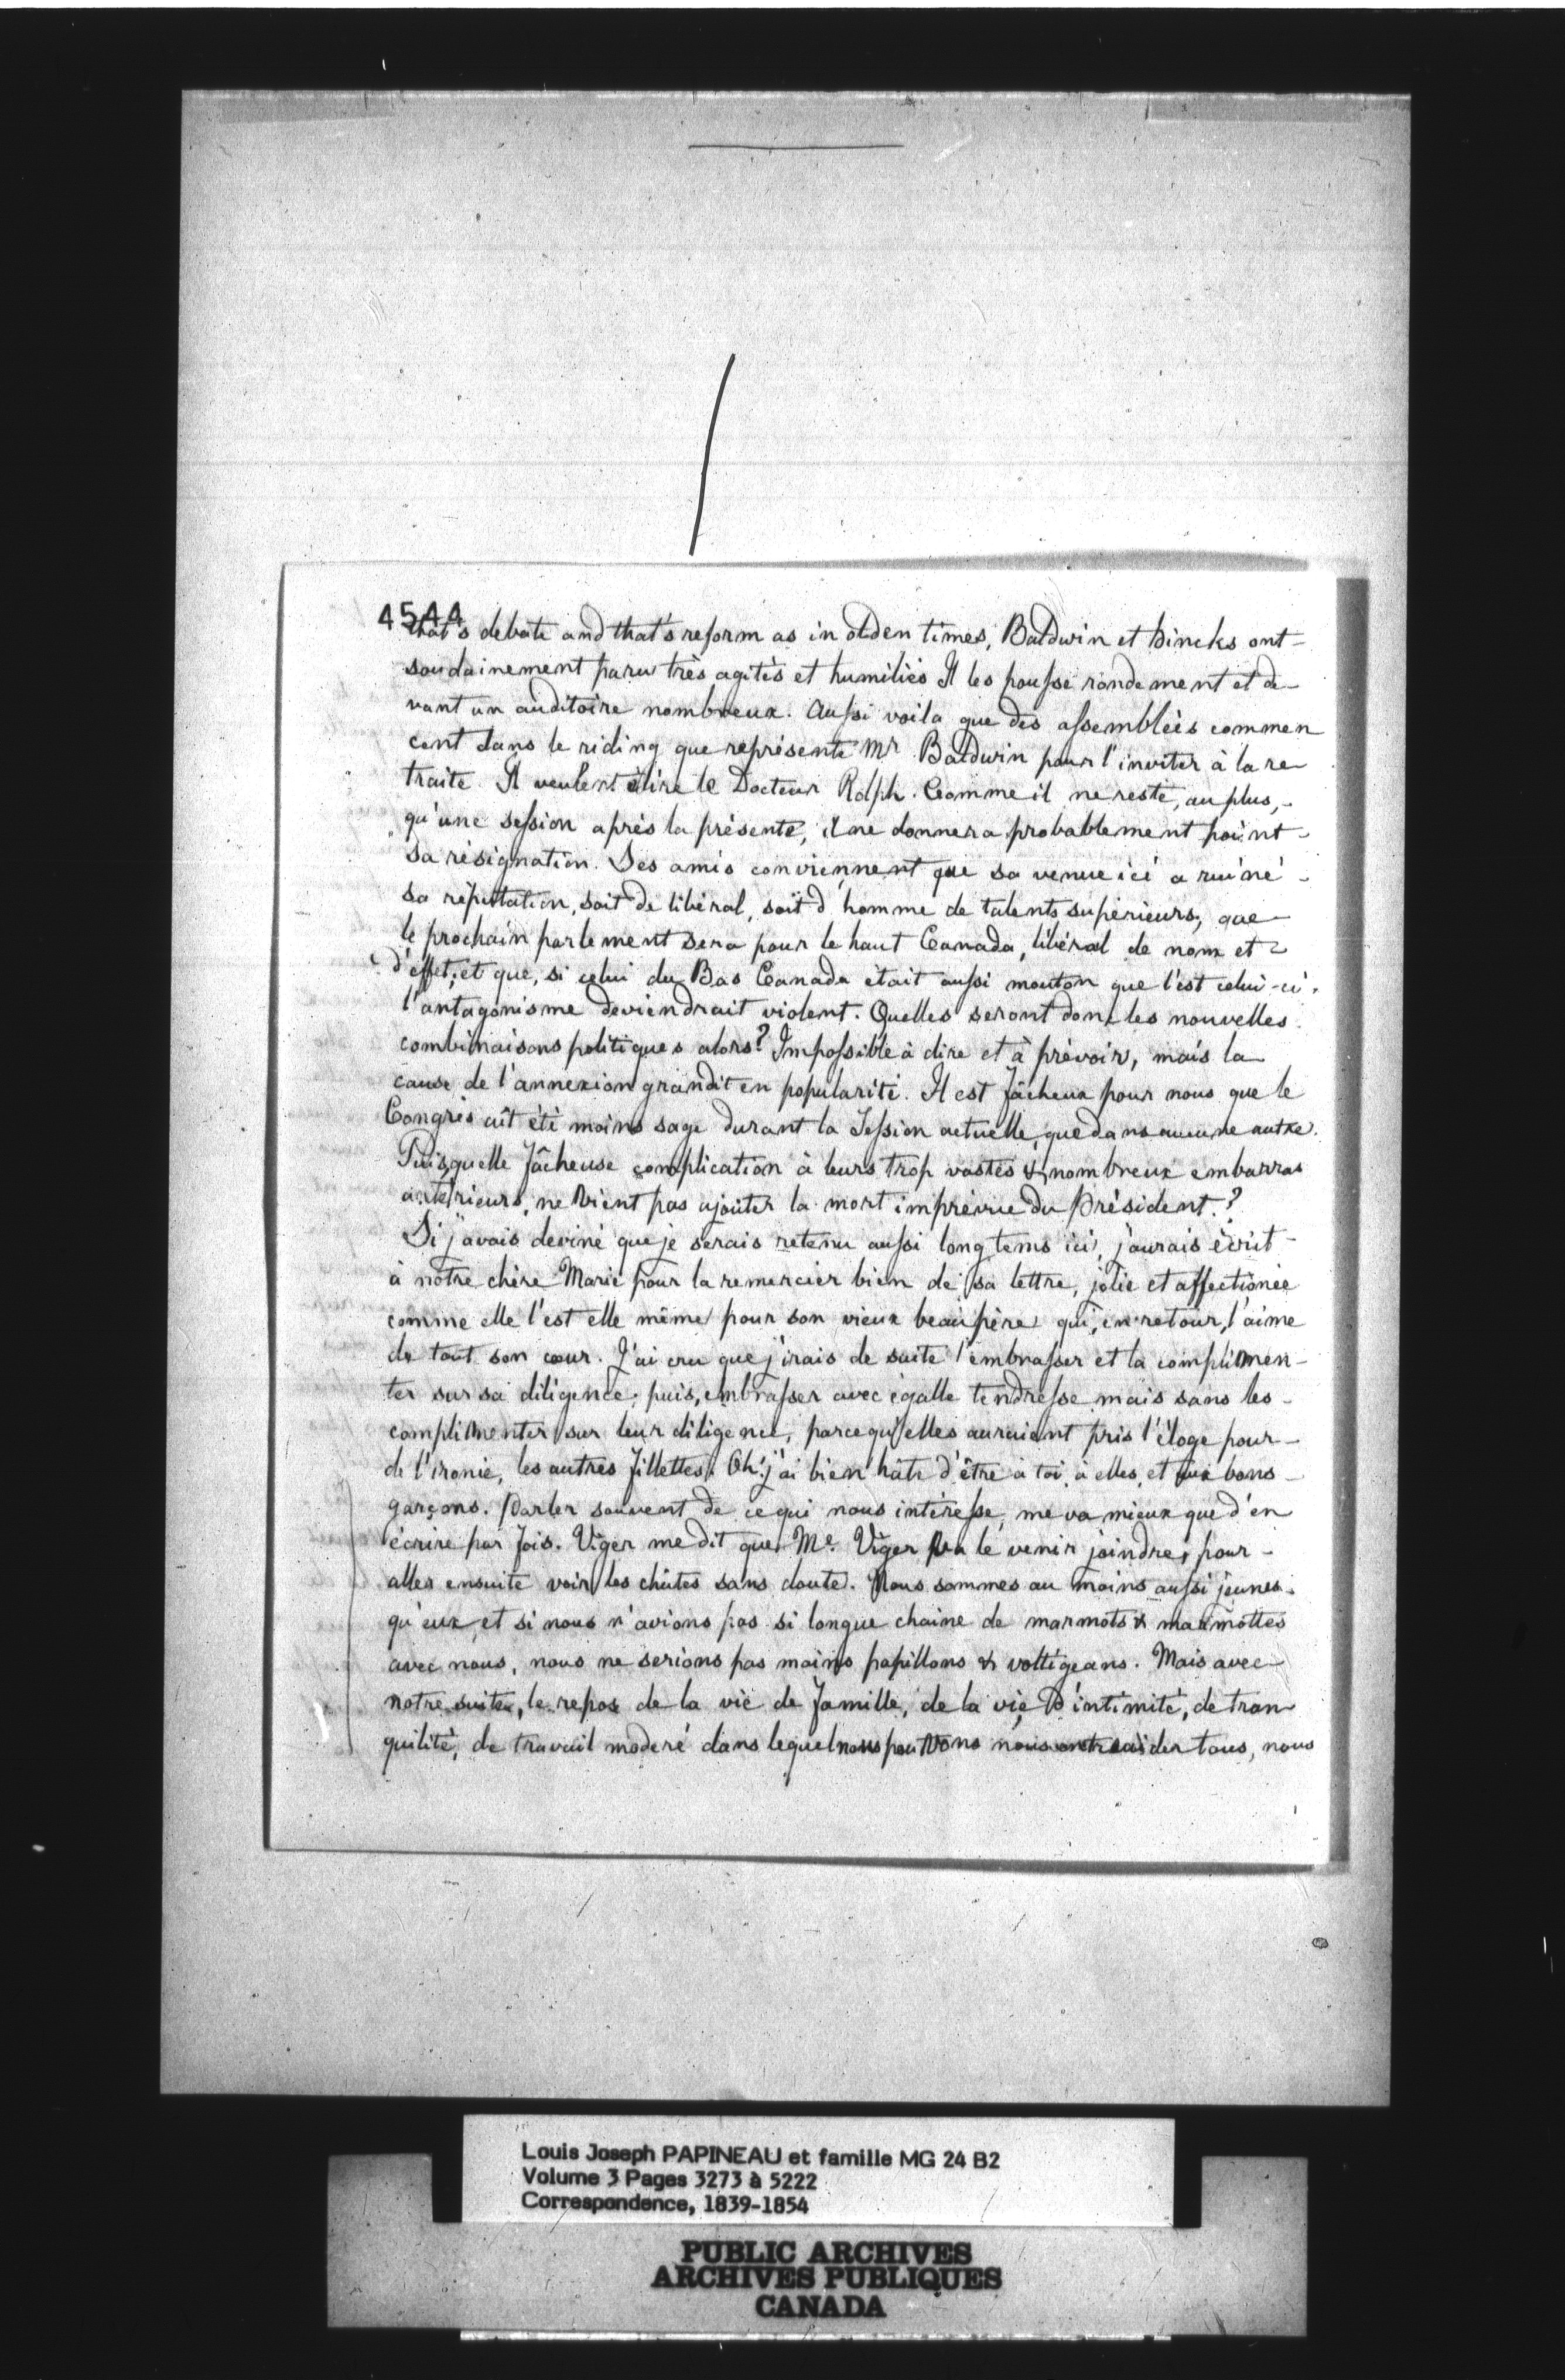 4544
that's debate and that's reform as in olden times, Baldwin et Hincks ont
soudainement paru très agités et humiliés Il les pousse rondement et de-
vant un auditoire nombreux. Aussi voila que des assemblées commen
cent dans le riding que représente Mr Baldwin pour l'inviter à la re
traite. Il veulent élire le Docteur Rolph. Comme il ne reste, au plus,
qu'une session après la présente, il ne donnera probablement point
sa résignation. Ses amis conviennent que sa venue ici a ruiné
sa réputation, soit de libéral, soit d'homme de talents supérieurs, que
le prochain parlement sera pour le haut Canada, libéral de nom et
d'effet; et que, si celui du Bas Canada était aussi mouton que l'est celui-ci,
l'antagonisme deviendrait violent. Quelles seront donc les nouvelles
combinaisons politiques alors? Impossible à dire et à prévoir, mais la
cause de l'annexion grandit en popularité. Il est fâcheux pour nous que le
Congrès aît été moins sage durant la Session actuelle, que dans aucune autre.
Puis, quelle fâcheuse complication à leurs trop vastes & nombreux embarras
antérieurs, ne vient pas ajouter la mort imprévue du Président?
Si j'avais deviné que je serais retenu aussi long tems ici, j'aurais écrit
à notre chère Marie pour la remercier bien de sa lettre, jolie et affectionée
comme elle l'est elle même pour son vieux beaupère qui, en retour, l'aime
de tout son cœur. J'ai cru que j'irais de suite l'embrasser et la complimen-
ter sur sa diligence; puis, embrasser avec égalle tendresse mais sans les
complimenter sur leur diligence, parcequ'elles auraient pris l'éloge pour
de l'ironie, les autres fillettes. Oh! j'ai bien hâte d'être à toi, à elles, et aux bons
garçons. Parler souvent de ce qui nous intéresse, me va mieux que d'en
écrire par fois. Viger me dit que Me. Viger va le venir joindre, pour
aller ensuite voir les chûtes sans doute. Nous sommes au moins aussi jeunes
qu'eux, et si nous n'avions pas si longue chaine de marmots & marmottes
avec nous, nous ne serions pas moins papillons & voltigeans. Mais avec
notre suite, le repos de la vie de famille, de la vie d'intimité, de tran
quilité, de travail moderé dans lequel nous pouvons nous entreaider tous, nous
Louis Joseph PAPINEAU et famille MG 24 B2
Volume 3 Pages 3273 à 5222
Correspondence, 1839-1854
PUBLIC ARCHIVES
ARCHIVES PUBLIQUES
CANADA